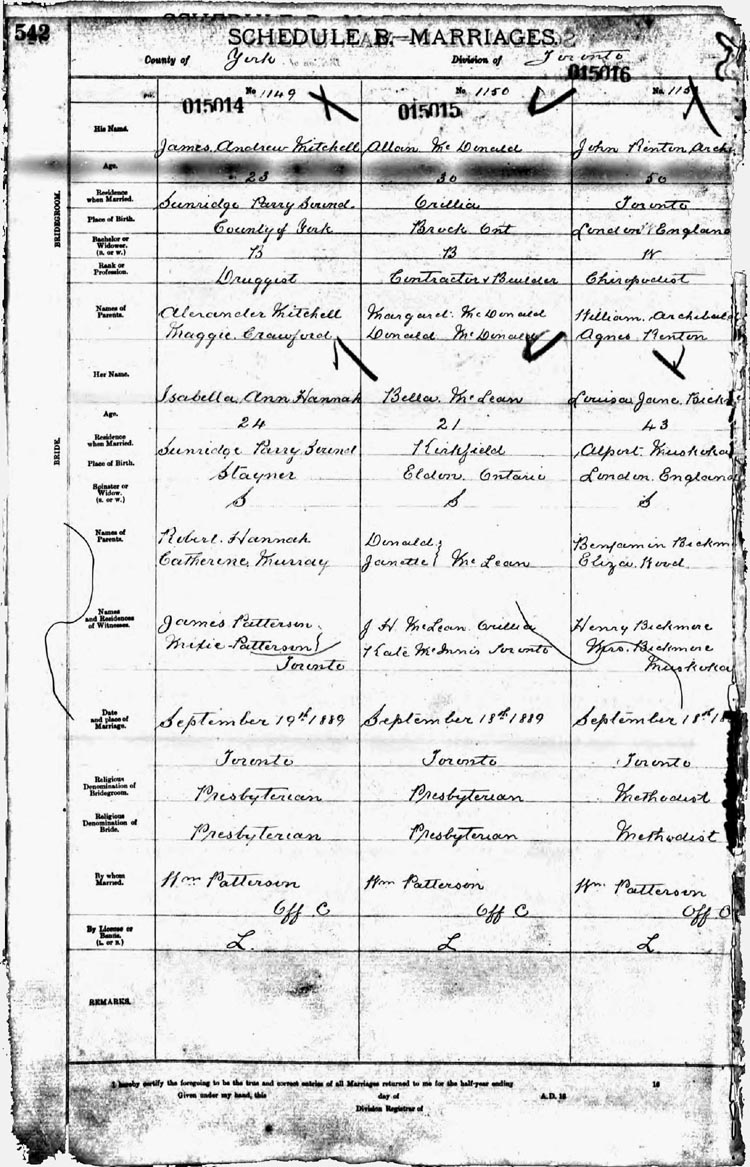 542
SCHEDULE B.—MARRIAGES.
County of York
Division of Toronto
015016
No 1149
No 1150
No 115
015014
015015
BRIDEGROOM.
His Name.
James Andrew Mitchell
Allan McDonald
John Renton Archi
Age.
23
30
50
Residence when Married.
Sunridge Parry Sound.
Orillia
Toronto
Place of Birth.
County of York
Brock Ont
London England
Bachelor or Widower. (B. or W.)
B
B
W
Rank or Profession.
Druggist
Contractor & Builder
Chiropodist
Names of Parents.
Alexander Mitchell
Maggie Crawford
Margaret McDonald
Donald McDonald
William Archibald
Agnes Renton
BRIDE.
Her Name.
Isabella Ann Hannah
Bella McLean
Louisa Jane Bickm
Age.
24
21
43
Residence when Married.
Sunridge Parry Sound
Kirkfield
Alport Muskoka
Place of Birth.
Stayner
Eldon Ontario
London England
Spinster or Widow. (S. or W.)
S
S
S
Names of Parents.
Robert Hannah
Catherine Murray
Donald
Janette } McLean
Benjamin Bickm
Eliza Wood
Names and Residences of Witnesses.
James Patterson
Patterson }
Toronto
J H McLean Orillia
Kate McInnis Toronto
Henry Bickmore
Mrs. Bickmore
Muskoka
Date and place of Marriage.
September 19th 1889
September 18th 1889
September 18th 18
Toronto
Toronto
Toronto
Religious Denomination of Bridegroom.
Presbyterian
Presbyterian
Methodist
Religious Denomination of Bride.
Presbyterian
Presbyterian
Methodist
By whom Married.
Wm Patterson
Off C
Wm Patterson
Off C
Wm Patterson
Off C
By License or Banns. (L. or B.)
L.
L
L
REMARKS.
I hereby certify the foregoing to be the true and correct entries of all Marriages returned to me for the half-year ending 18
Given under my hand, this day of A.D. 18
Division Registrar of